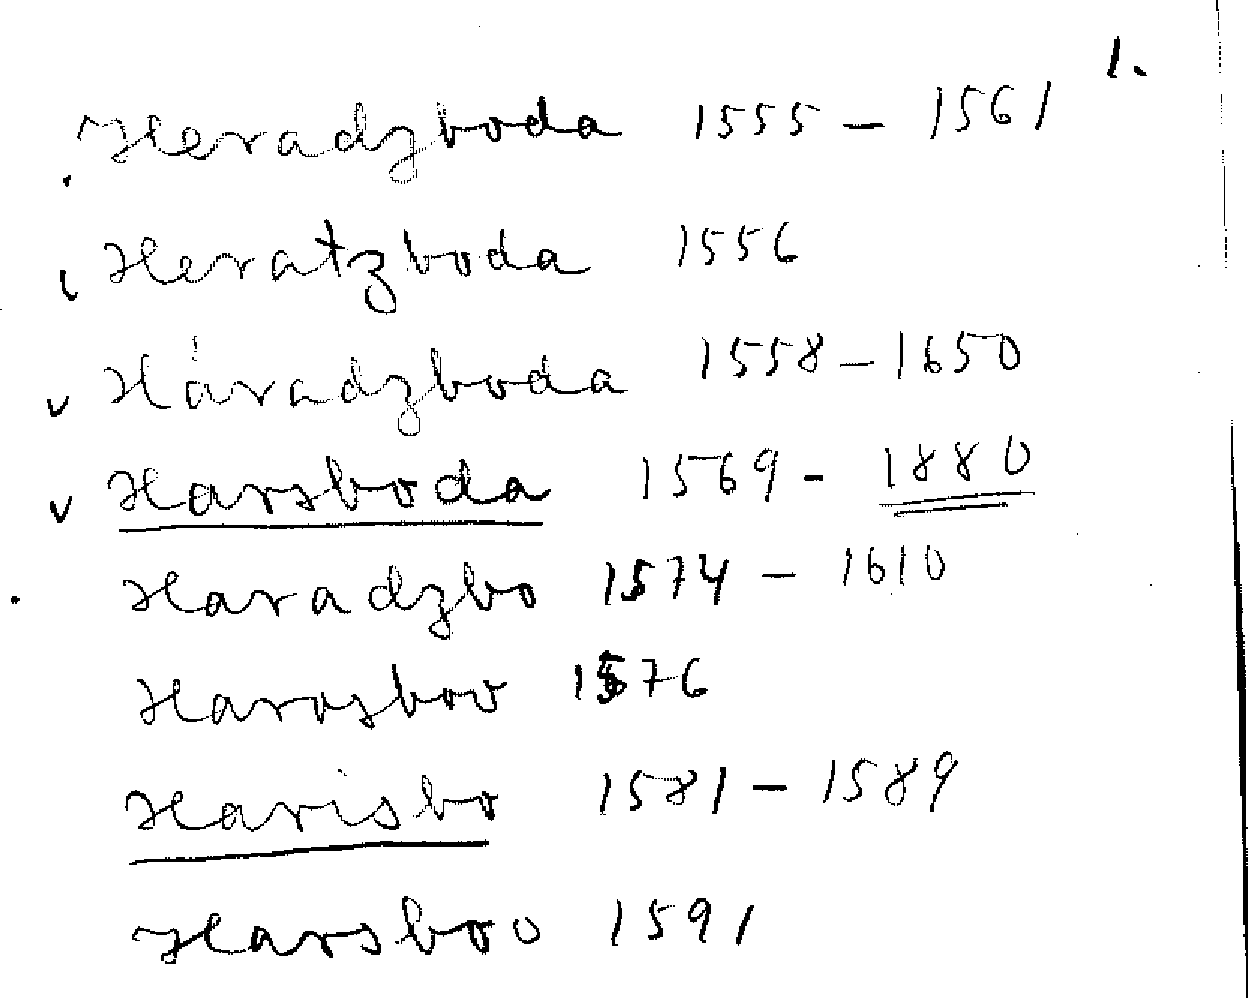 1.
Heradzboda 1555 - 1561
Heratzboda 1556
Håradzboda 1558 - 1650
Harsboda 1569 - 1880
Haradzbo 1574 - 1610
Harosboo 1576
Harisbo 1581 - 1589
Harsboo 1591